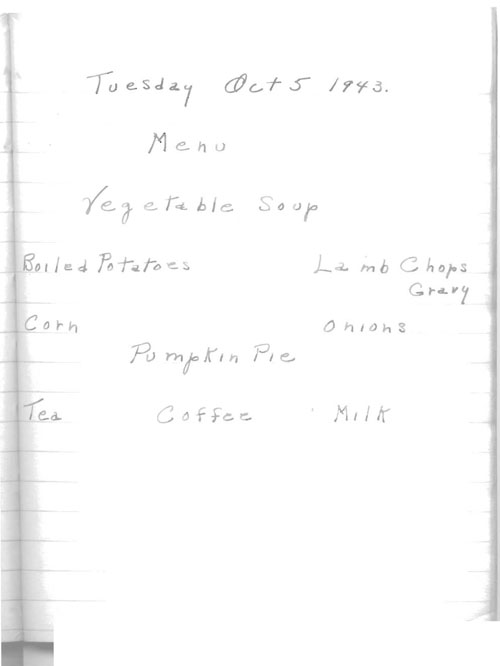 Tuesday Oct 5 1943.
Menu
Vegetable Soup
Boiled Potatoes Lamb Chops
Gravy
Corn Onions
Pumpkin Pie
Tea Coffee Milk